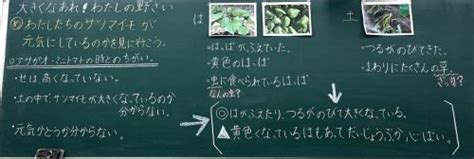 大きくなあれ！わたしの野さい
㋱わたしたちのサツマイモが
元気にしているのかを見に行こう。
アサガオ・ミニトマトの時とのちがい。
・せは、高くなっていない。
・土の中で、サツマイモが大きくなっているのか
分からない。
・元気かどうか分からない。
は
・はっぱがふえていた。
・黄色のはっぱ
・虫に食べられているはっぱ
なんの虫？
土
・つるがのびてきた。
・まわりにたくさんの草。
ざっ草？
◎はがふえたり、つるがのびて大きくなっている。
▲黄色くなっているはもあて、だいじょうぶか心ぱい。